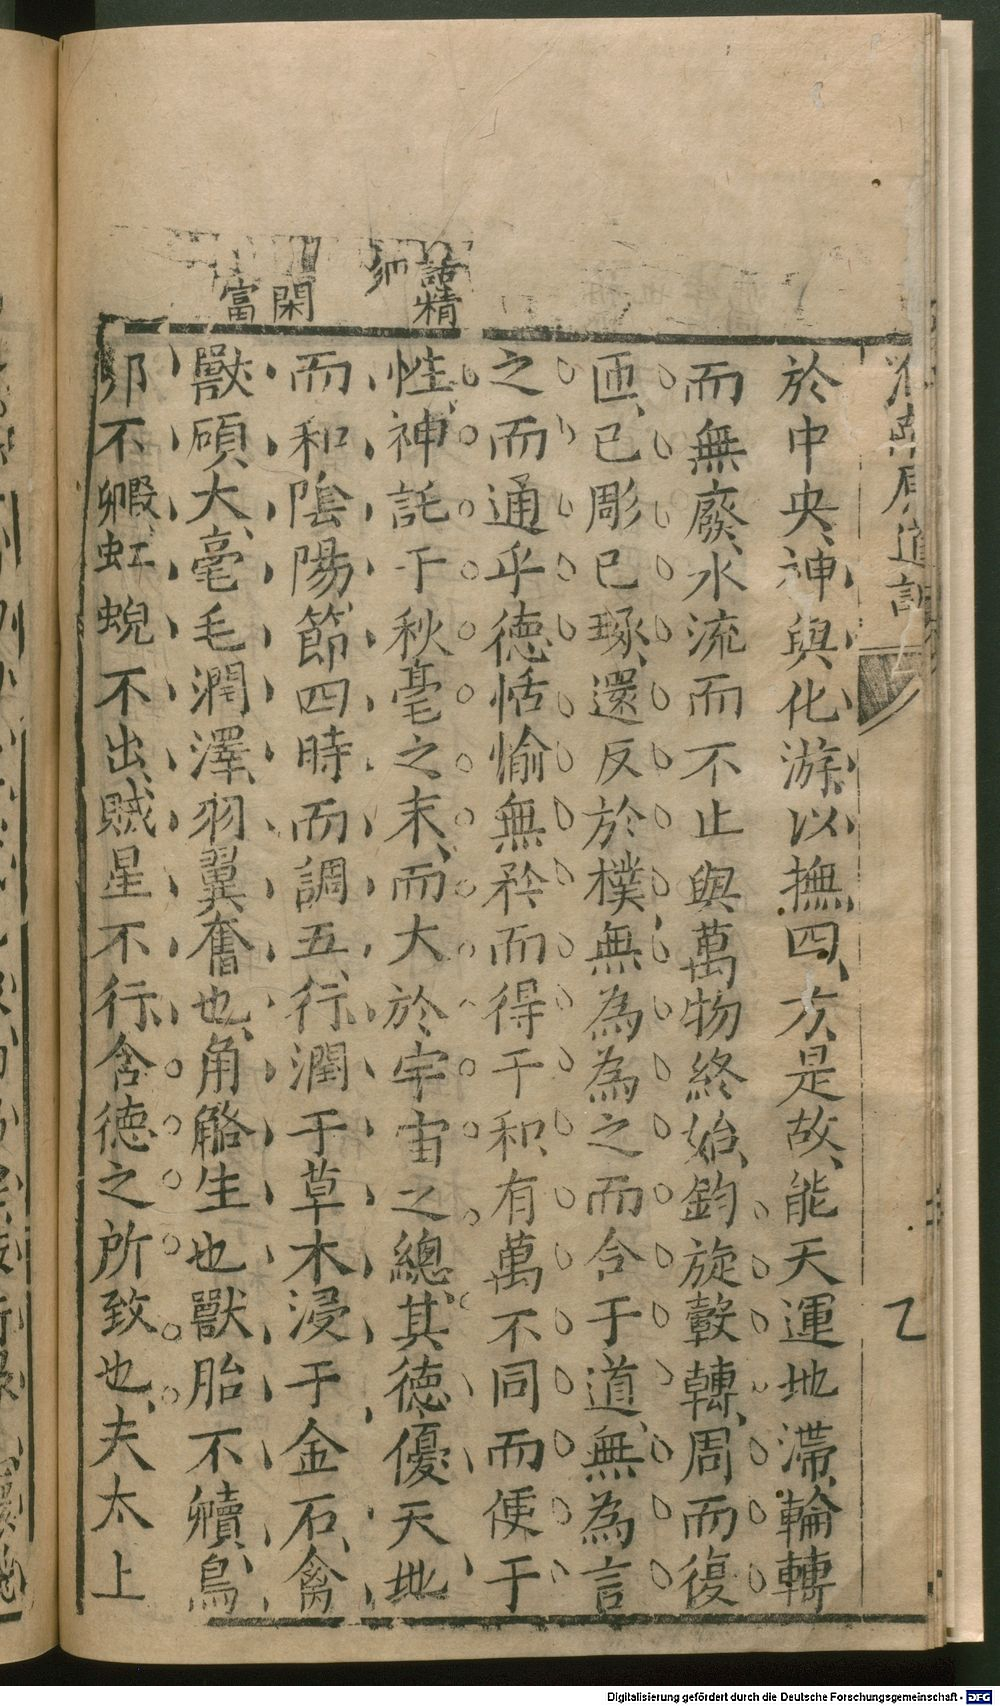 淮南原道訓
乙
於中央神與化游以撫四方是故能天運地滯輪轉
而無廢水流而不止與萬物終始鈞旋轂轉周而復
匝已彫已琢還反於樸無為為之而合于道無為言
之而通乎德恬愉無矜而得于和有萬不同而便于
性神託于秋毫之末而大於宇宙之總其德優天地
而和陰陽節四時而調五行潤于草木浸于金石禽
獸碩大毫毛潤澤羽翼奮也角觡生也獸胎不殰鳥
卵不毈虹蜺不出賊星不行含德之所致也夫太上
精
閑
富
Digitalisierung gefördert durch die Deutsche Forschungsgemeinschaft - DFG